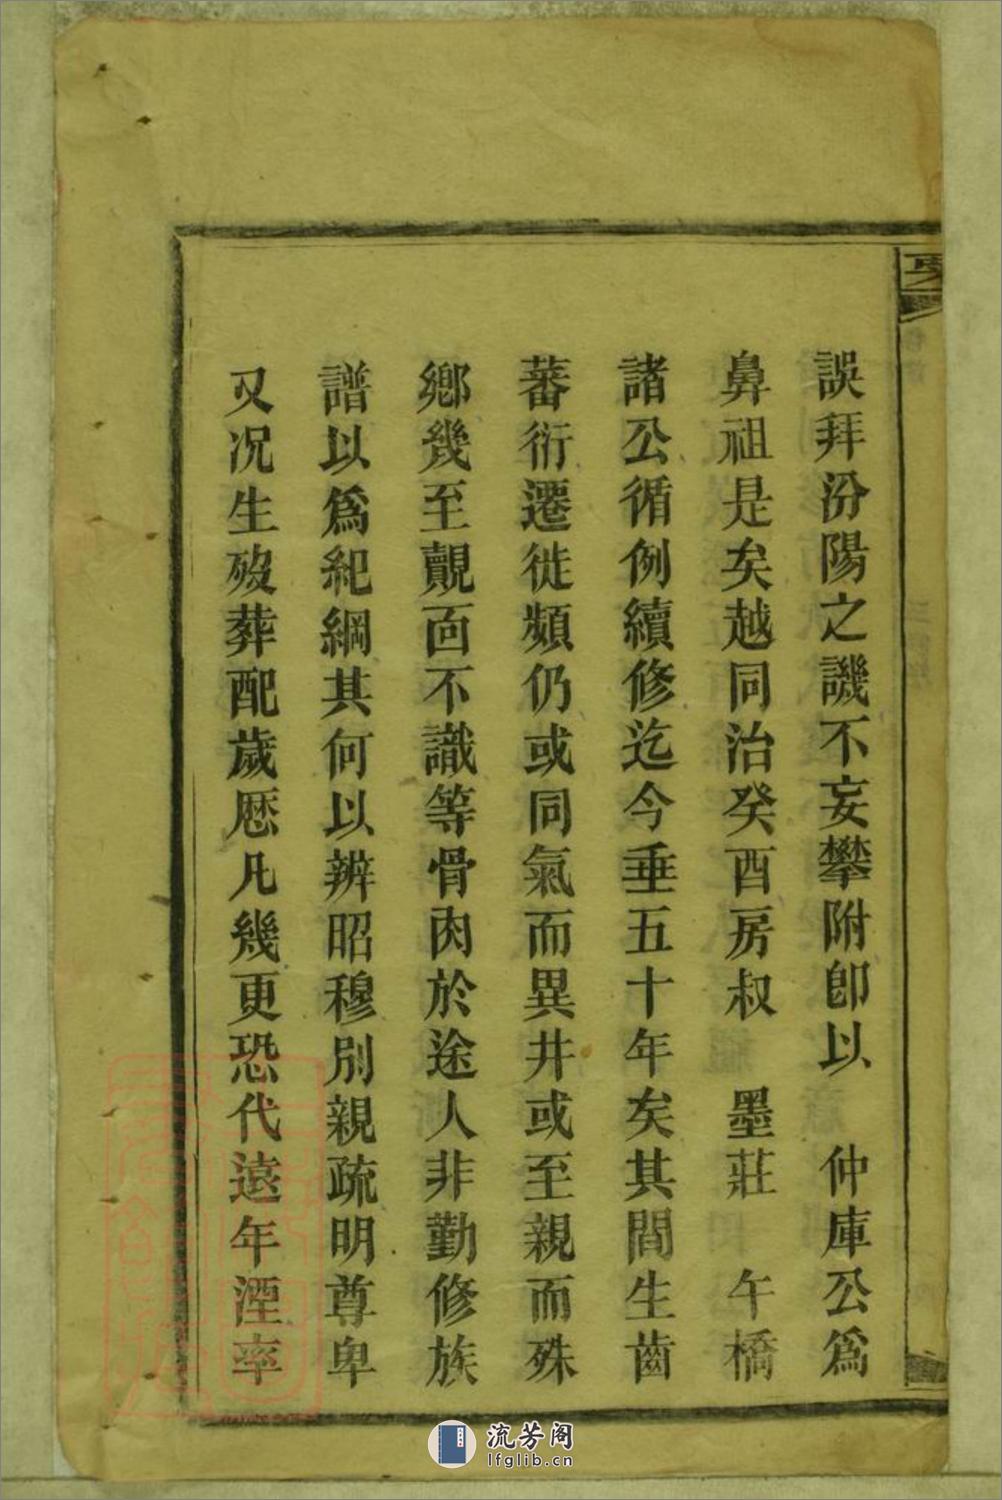 誤拜汾陽之譏不妄攀附卽以　仲庫公爲
鼻祖是矣越同治癸酉房叔　墨莊　午橋
諸公循例續修迄今垂五十年矣其間生齒
蕃衍遷徙頻仍或同氣而異井或至親而殊
鄉幾至覿面不識等骨肉於途人非勤修族
譜以爲紀綱其何以辨昭穆別親疏明尊卑
又况生歿葬配歲厯凡幾更恐代遠年湮率
流芳阁
lfglib.cn